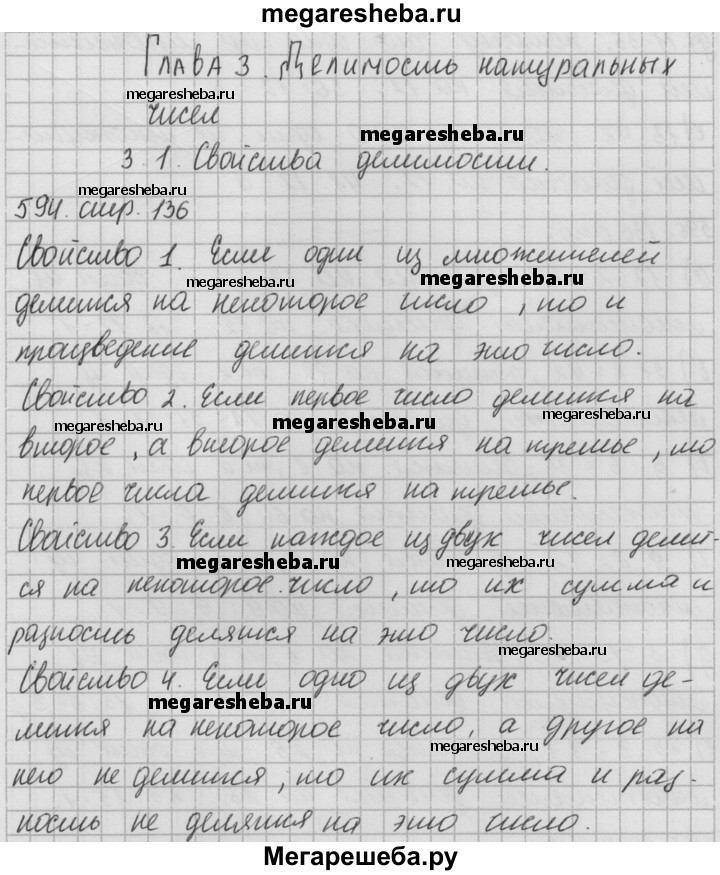 megaresheba.ru
Глава 3. Делимость натуральных
megaresheba.ru
чисел
megaresheba.ru
3.1. Свойства делимости.
megaresheba.ru
594. стр. 136
Свойство 1. Если один из множителей
megaresheba.ru
megaresheba.ru
делится на некоторое число, то и
произведение делится на это число.
Свойство 2. Если первое число делится на
megaresheba.ru
megaresheba.ru
megaresheba.ru
второе, а второе делится на третье, то
первое числа делится на третье.
Свойство 3. Если каждое из двух чисел делит-
megaresheba.ru
megaresheba.ru
ся на некоторое число, то их сумма и
разность делятся на это число.
megaresheba.ru
Свойство 4. Если одно из двух чисел де-
megaresheba.ru
лится на некоторое число, а другое на
megaresheba.ru
него не делится, то их сумма и раз-
ность не делятся на это число.
Мегарешеба.ру